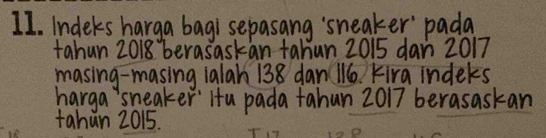 11. Indeks harga bagi sepasang 'sneaker' pada
tahun 2018 berasaskan tahun 2015 dan 2017
masing-masing ialah 138 dan 116. Kira indeks
harga 'sneaker' itu pada tahun 2017 berasaskan
tahun 2015.